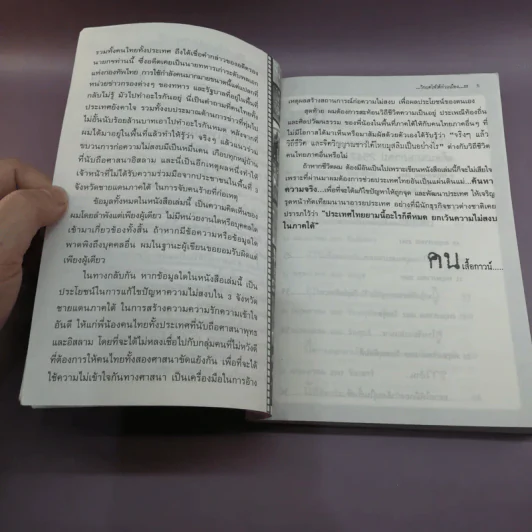 รวมทั้งคนไทยทั้งประเทศ ถึงได้เชื่อคำกล่าวของอดีตรอง
นายกฯท่านนี้ ซึ่งอดีตเคยเป็นนายทหารเก่าระดับทหารเอก
แห่งกองทัพไทย การใช้กำลังคนมากมายขนาดนี้ทั้งของ
หน่วยข่าวกรองต่างๆ ของทหาร และรัฐบาลที่อยู่ในพื้นที่
กลับไม่รู้ มัวไปทำอะไรกันอยู่ นี่เป็นคำถามที่คนไทยทั้ง
ประเทศยังคาใจ รวมทั้งงบประมาณด้านการข่าวที่ทุ่มไป
ไม่อั้นนับร้อยล้านบาทเอาไปทำอะไรกันหมด หลังจากที่
ผมได้มาอยู่ในพื้นที่แล้วทำให้รู้ว่า จริงๆ แล้วแนวร่วม
ขบวนการก่อความไม่สงบมีเป็นหมื่นคน เกือบทุกหมู่บ้าน
ที่นับถือศาสนาอิสลาม และนี่เป็นอีกเหตุผลหนึ่งทำให้
เจ้าหน้าที่ไม่ได้รับความร่วมมือจากประชาชนในพื้นที่ 3
จังหวัดชายแดนภาคใต้ ในการจับคนร้ายที่ก่อเหตุ
ข้อมูลทั้งหมดในหนังสือเล่มนี้ เป็นความคิดเห็นของ
ผมโดยลำพังแต่เพียงผู้เดียว ไม่มีหน่วยงานใดหรือบุคคลใด
เข้ามาเกี่ยวข้องทั้งสิ้น ถ้าหากมีข้อความหรือข้อมูลใด
พาดพิงถึงบุคคลอื่น ผมในฐานะผู้เขียนขอยอมรับผิดแต่
เพียงผู้เดียว
ในทางกลับกัน หากข้อมูลใดในหนังสือเล่มนี้ เป็น
ประโยชน์ในการแก้ไขปัญหาความไม่สงบใน 3 จังหวัด
ชายแดนภาคใต้ ในการสร้างความความรักความเข้าใจ
อันดี ให้แก่พี่น้องคนไทยทั้งประเทศที่นับถือศาสนาพุทธ
และอิสลาม โดยที่จะได้ไม่หลงเชื่อไปกับกลุ่มคนที่ไม่หวังดี
ที่ต้องการให้คนไทยทั้งสองศาสนาขัดแย้งกัน เพื่อที่จะได้
ใช้ความไม่เข้าใจกันทางศาสนา เป็นเครื่องมือในการอ้าง
เหตุผลสร้างสถานการณ์ก่อความไม่สงบ เพื่อผลประโยชน์ของตนเอง
สุดท้าย ผมต้องการสะท้อนวิถีชีวิตความเป็นอยู่ ประเพณีท้องถิ่น
และศิลปวัฒนธรรม ของพี่น้องในพื้นที่ภาคใต้ให้กับคนไทยภาคอื่นๆ ที่
ไม่มีโอกาสได้มาเห็นหรือมาสัมผัสด้วยตัวเองได้รับรู้ว่า "จริงๆ แล้ว
วิถีชีวิต และจิตวิญญาณชาวใต้ไทยมุสลิมเป็นอย่างไร" ต่างกับวิถีชีวิต
คนไทยภาคอื่นหรือไม่
ถ้าหากชีวิตผม ต้องมีอันเป็นไปเพราะเขียนหนังสือเล่มนี้ก็จะไม่เสียใจ
เพราะที่ผ่านมาผมต้องการช่วยประเทศไทยอันเป็นแผ่นดินแม่...ค้นหา
ความจริง...เพื่อที่จะได้แก้ไขปัญหาให้ถูกจุด และพัฒนาประเทศ ให้เจริญ
รุดหน้าทัดเทียมนานาอารยประเทศ อย่างที่มีนักธุรกิจชาวต่างชาติเคย
ปรารภไว้ว่า "ประเทศไทยยามนี้อะไรก็ดีหมด ยกเว้นความไม่สงบ
ในภาคใต้"
คน เสื้อกาวน์.....